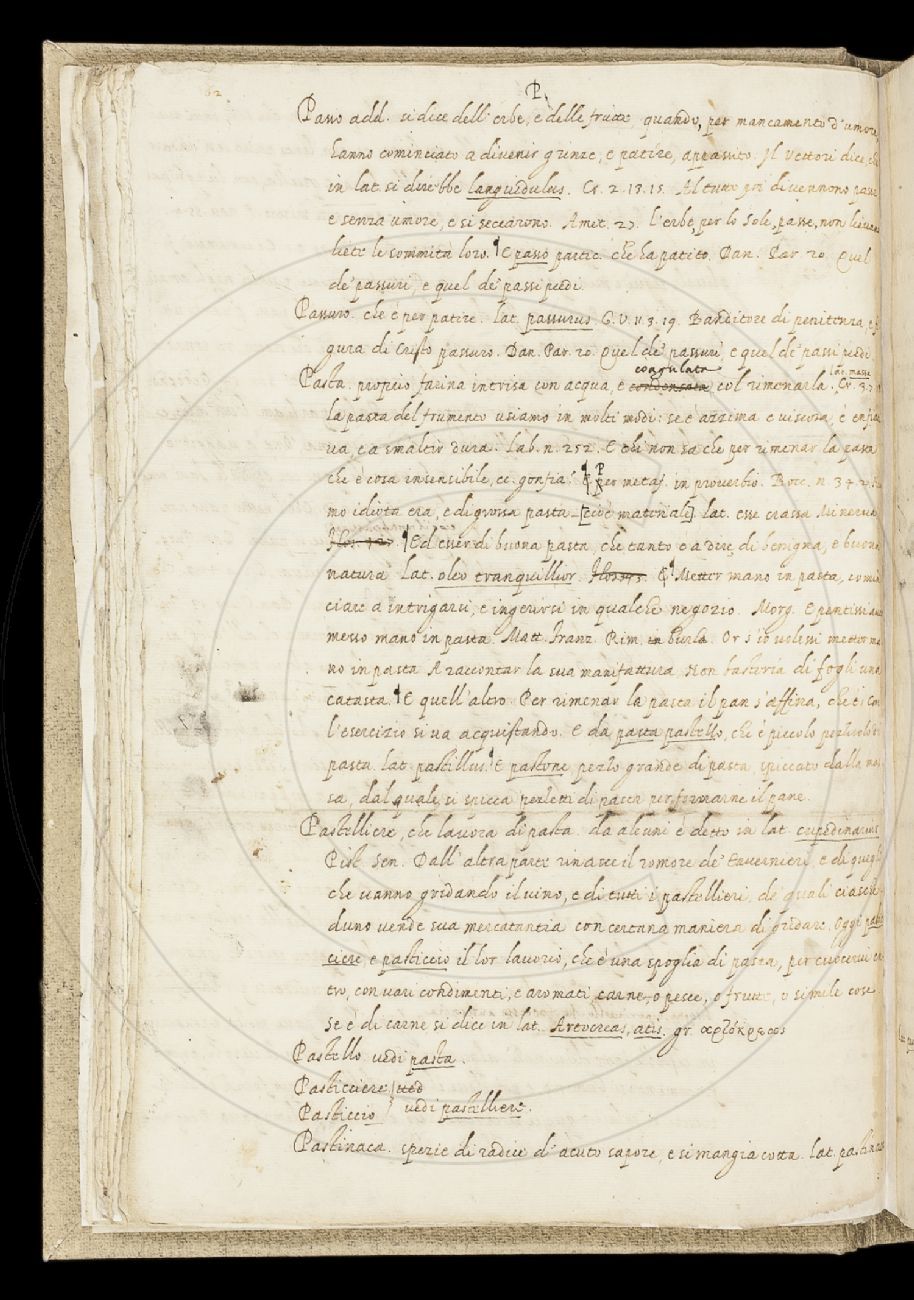 62
P
Passo add. si dice dell' erbe, e delle frutte quando, per mancamento d'umore
hanno cominciato a divenir grinze, e patire, appassito. Il Vettori dice, ch
in lat. si direbbe languidulus. Cr. 2. 13. 15. Al tutto poi divennono passe
e senza umore, e si seccarono. Amet. 27. l'erbe, per lo Sole, passe, non
liete le sommità loro. E passo partic. che ha patito. Dan. Par. 20. Quel
de' passuri, e quel de' passi piedi.
Passuro. che è per patire. lat. passurus. G. V. 11. 3. 19. Banditore di penitenza, e fi
gura di Cristo passuro. Dan. Par. 20. Quel de' passuri e quel de' passi piedi
coagulata lat. massa
Pasta. proprio farina intrisa con acqua, e condensata col rimenarla. Cr. 3. 7.
la pasta del frumento usiamo in molti modi: se è azzima e viscosa, è enfia
va, e a smaltir dura. Lab. n. 252. E chi non sa che per rimenar la pasta
che è cosa insensibile, ec. gonfia? E Per metaf. in proverbio. Bocc. n. 34. 2.
mo idiota era, e di grossa pasta [cioè materiale] lat. esse crassa Minerva
Ed esser di buona pasta, che tanto è a dire, di benigna, e buona
natura lat. oleo tranquillior. E Metter mano in pasta, comin
ciare a intrigarsi, e ingerirsi in qualche negozio. Morg. E
messo mano in pasta. Matt. Franz. Rim. in burla. Or s'io volessi metter ma
no in pasta A raccontar la sua manifattura Non basteria di fogli una
catasta. E quell'altro Per rimenar la pasta il pan s'affina, che è, con
l'esercizio si va acquistando. E da pasta pastello, che è piccolo pezzuolo di
pasta. lat. pastillus. E pastone pezzo grande di pasta, spiccato dalla mas
sa, dal quale si spicca pezzetti di pasta per formarne il pane.
Pastelliere, che lavora di pasta. da alcuni è detto in lat. cupedinarius
Pist. Sen. Dall' altra parte rinasce il romore de' Tavernieri e di quegli
che vanno gridando il vino, e di tutti i pastellieri, de' quali ciasche
duno vende sua mercatantia con certana maniera di gridare. Oggi pastic
ciere, e pasticcio il lor lavorio, che è una spoglia di pasta, per cuocervi en
tro, con vari condimenti, e aromati, carne, o pesce, o frutte, o simile cose
se è di carne si dice in lat. Artocreas, atis. gr. ἀρτόκρεας
Pastello vedi pasta.
Pasticciere ved
Pasticcio vedi pastelliere.
Pastinaca. spezie di radice di acuto sapore, e si mangia cotta. lat. pastinaca